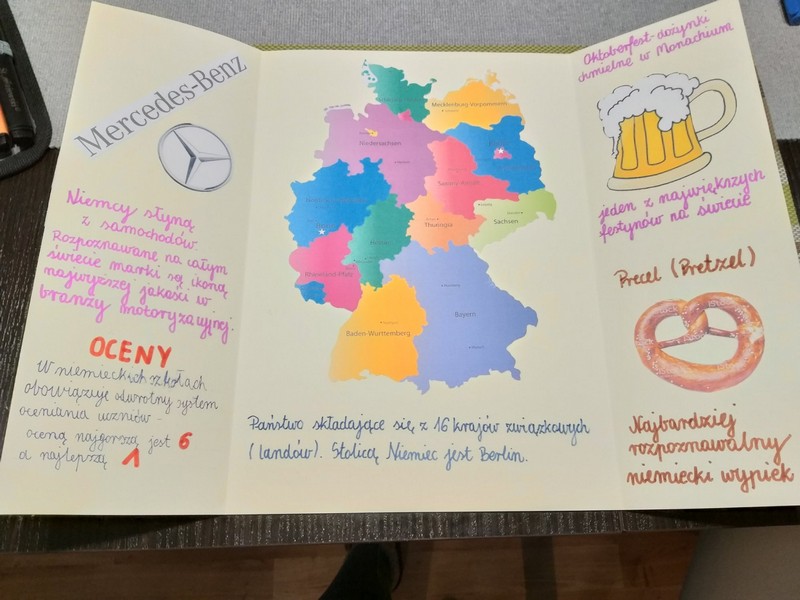 Mercedes-Benz
Niemcy słyną
z samochodów.
Rozpoznawane na całym
świecie marki są ikoną
najwyższej jakości w
branży motoryzacyjnej.
OCENY
W niemieckich szkołach
obowiązuje odwrotny system
oceniania uczniów -
oceną najgorszą jest 6
a najlepszą 1
Mecklenburg-Vorpommern
Niedersachsen
Sachsen-Anhalt
Sachsen
Thüringen
Hessen
Rheinland-Pfalz
Bayern
Baden-Württemberg
Państwo składające się z 16 krajów związkowych
(landów). Stolicą Niemiec jest Berlin.
Oktoberfest-dożynki
chmielne w Monachium
jeden z największych
festynów na świecie
Precel (Pretzel)
Najbardziej
rozpoznawalny
niemiecki wypiek